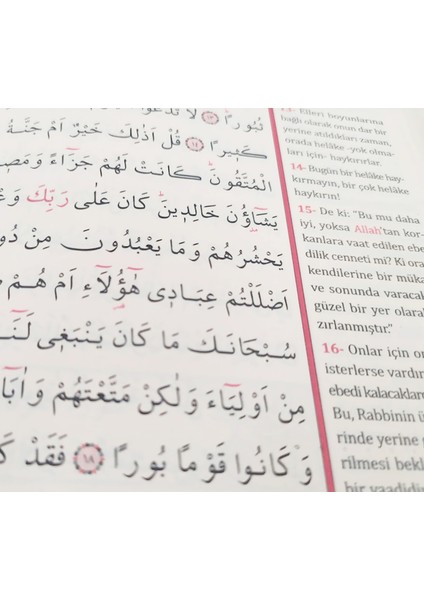 ثُبُورًا ﴿١٣﴾ لَا تَدْعُوا
كَثِيرًا ﴿١٤﴾ قُلْ اَذٰلِكَ خَيْرٌ اَمْ جَنَّةُ
الْمُتَّقُونَۜ كَانَتْ لَهُمْ جَزَٓاءً وَمَص
يَشَٓاؤُ۫نَ خَالِد۪ينَۜ كَانَ عَلٰى رَبِّكَ وَعْ
يَحْشُرُهُمْ وَمَا يَعْبُدُونَ مِنْ دُو
اَضْلَلْتُمْ عِبَاد۪ي هٰٓؤُ۬لَٓاءِ اَمْ هُمْ
سُبْحَانَكَ مَا كَانَ يَنْبَغ۪ي لَنَٓا
مِنْ اَوْلِيَٓاءَ وَلٰكِنْ مَتَّعْتَهُمْ وَاٰبَٓا
وَكَانُوا قَوْمًا بُورًا ﴿١٨﴾ فَقَدْ كَ
13- Elleri boyunlarına
bağlı olarak onun dar bir
yerine atıldıkları zaman,
orada helâke -yok olma-
ları için- haykırırlar.
14- Bugün bir helâke hay-
kırmayın, bir çok helâke
haykırın!
15- De ki: "Bu mu daha
iyi, yoksa Allah'tan kor-
kanlara vaat edilen ebe
dilik cenneti mi? Ki ora
kendilerine bir müka
ve sonunda varacak
güzel bir yer olara
zırlanmıştır."
16- Onlar için or
isterlerse vardır
ebedi kalacaklar
Bu, Rabbinin ü
rinde yerine g
rilmesi bekl
bir vaadidi